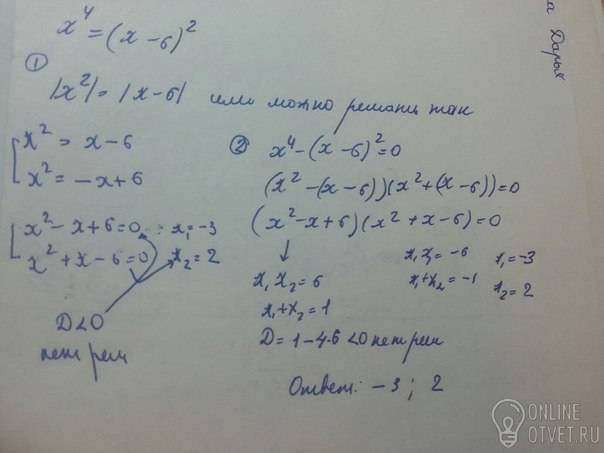 x⁴ = (x - 6)²
①
|x²| = |x - 6| или можно решать так
[ x² = x - 6
x² = -x + 6
[ x² - x + 6 = 0 x₁ = -3
x² + x - 6 = 0 x₂ = 2
D < 0
нет реш
② x⁴ - (x - 6)² = 0
(x² - (x - 6))(x² + (x - 6)) = 0
(x² - x + 6)(x² + x - 6) = 0
↓
x₁x₂ = 6
x₁ + x₂ = 1
D = 1 - 4·6 < 0 нет реш
x₁x₂ = -6 x₁ = -3
x₁ + x₂ = -1 x₂ = 2
Ответ: -3 ; 2
а Дарья
ONLINE
OTVET.RU